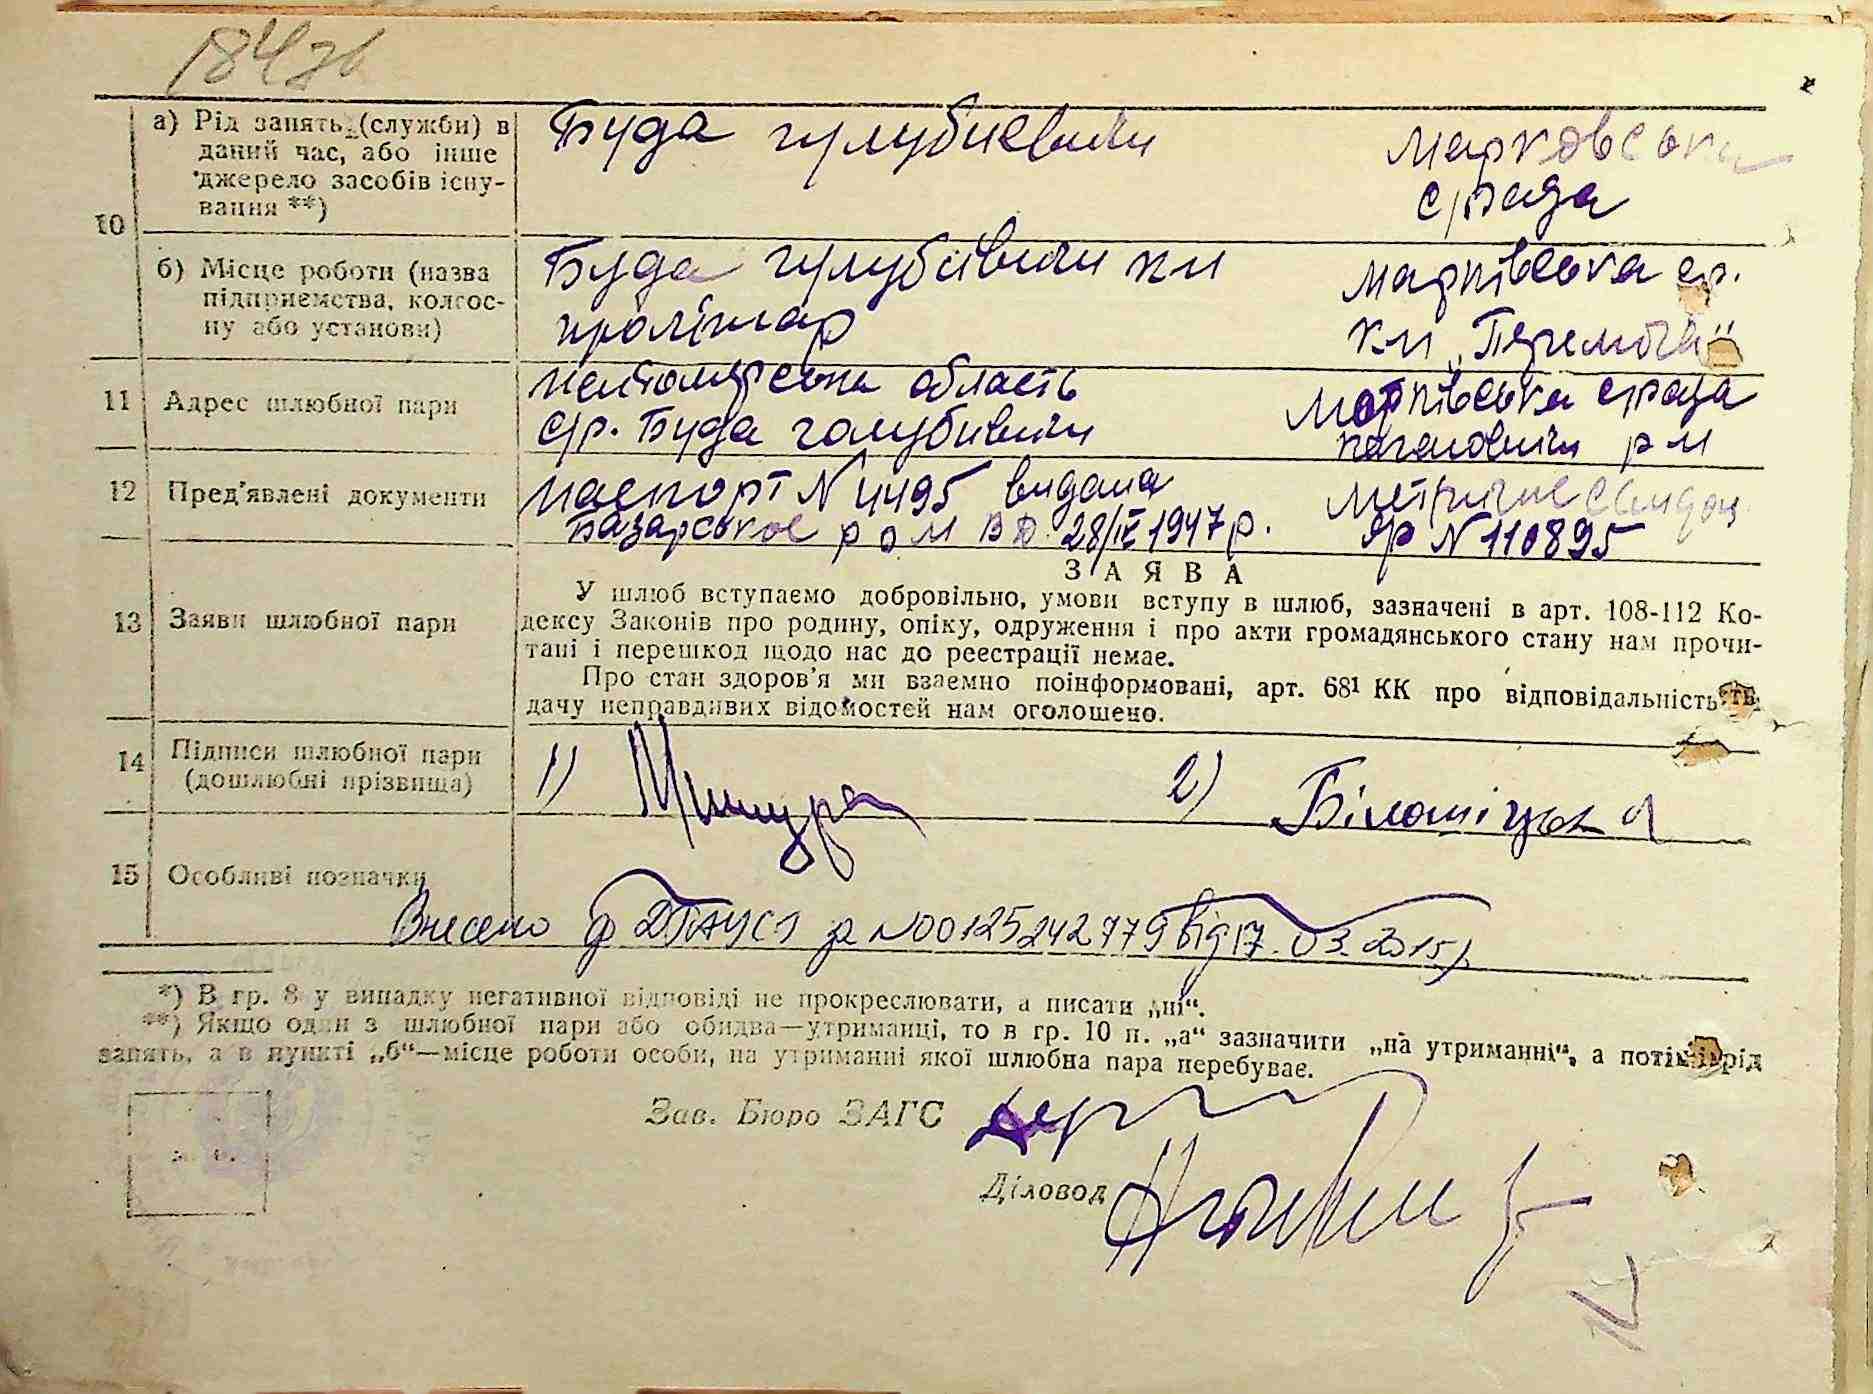 184зв
а) Рід занять (служби) в
даний час, або інше
джерело засобів існу-
вання **)
Буда гулубиевичи
Марковська
с/рада
10
б) Місце роботи (назва
підприємства, колгос-
пу або установи)
Буда гулубивичи
Марківська с/р.
"Перемога"
11 Адрес шлюбної пари
область
с/р. Буда голубивичи
Марківська с/рада
р н
12 Пред'явлені документи
паспорт N 4495 видана
Базарськое 28/IV 1947 р.
Метричне
ЯР N 110895
13 Заяви шлюбної пари
ЗАЯВА
У шлюб вступаємо добровільно, умови вступу в шлюб, зазначені в арт. 108-112 Ко-
дексу Законів про родину, опіку, одруження і про акти громадянського стану нам прочи-
тані і перешкод щодо нас до реєстрації немає.
Про стан здоров'я ми взаємно поінформовані, арт. 68¹ КК про відповідальність
дачу неправдивих відомостей нам оголошено.
14 Підписи шлюбної пари
(дошлюбні прізвища)
1)
2) Білошіцька
15 Особливі позначки
Внесено N00125242779 від 17.03.2015р.
*) В гр. 8 у випадку негативної відповіді не прокреслювати, а писати „ні“.
**) Якщо один з шлюбної пари або обидва—утриманці, то в гр. 10 п. „а“ зазначити „на утриманні“, а потім рід
занять, а в пункті „б“—місце роботи особи, на утриманні якої шлюбна пара перебуває.
Зав. Бюро ЗАГС
Діловод